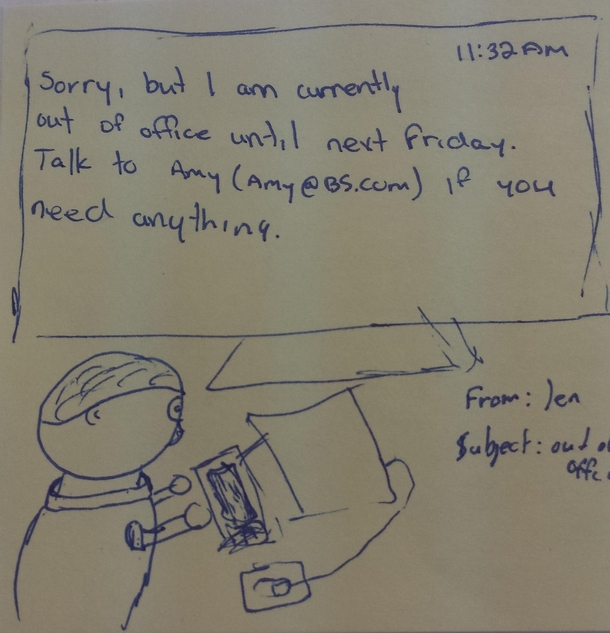 11:32 AM
Sorry, but I am currently
out of office until next Friday.
Talk to Amy (Amy@BS.com) if you
need anything.
From: Jen
Subject: out o
offc